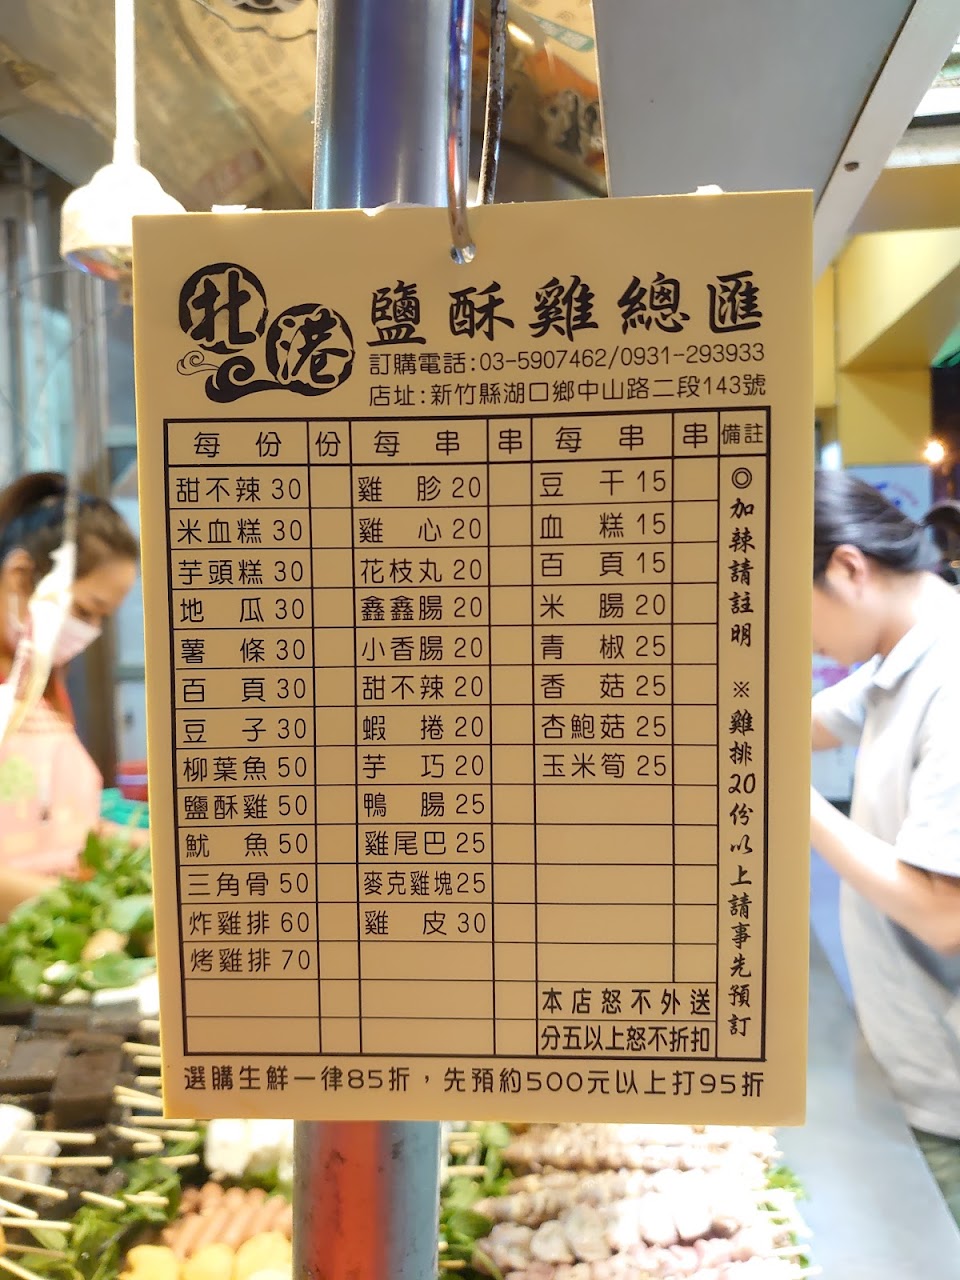 北港 鹽酥雞總匯
訂購電話:03-5907462/0931-293933
店址:新竹縣湖口鄉中山路二段143號
每份 份 每串 串 每串 串 備註
甜不辣 30 雞胗 20 豆干 15
米血糕 30 雞心 20 血糕 15
芋頭糕 30 花枝丸 20 百頁 15
地瓜 30 鑫鑫腸 20 米腸 20
薯條 30 小香腸 20 青椒 25
百頁 30 甜不辣 20 香菇 25
豆子 30 蝦捲 20 杏鮑菇 25
柳葉魚 50 芋巧 20 玉米筍 25
鹽酥雞 50 鴨腸 25
魷魚 50 雞尾巴 25
三角骨 50 麥克雞塊 25
炸雞排 60 雞皮 30
烤雞排 70
本店怒不外送
分五以上怒不折扣
◎加辣請註明 ※雞排20份以上請事先預訂
選購生鮮一律85折，先預約500元以上打95折